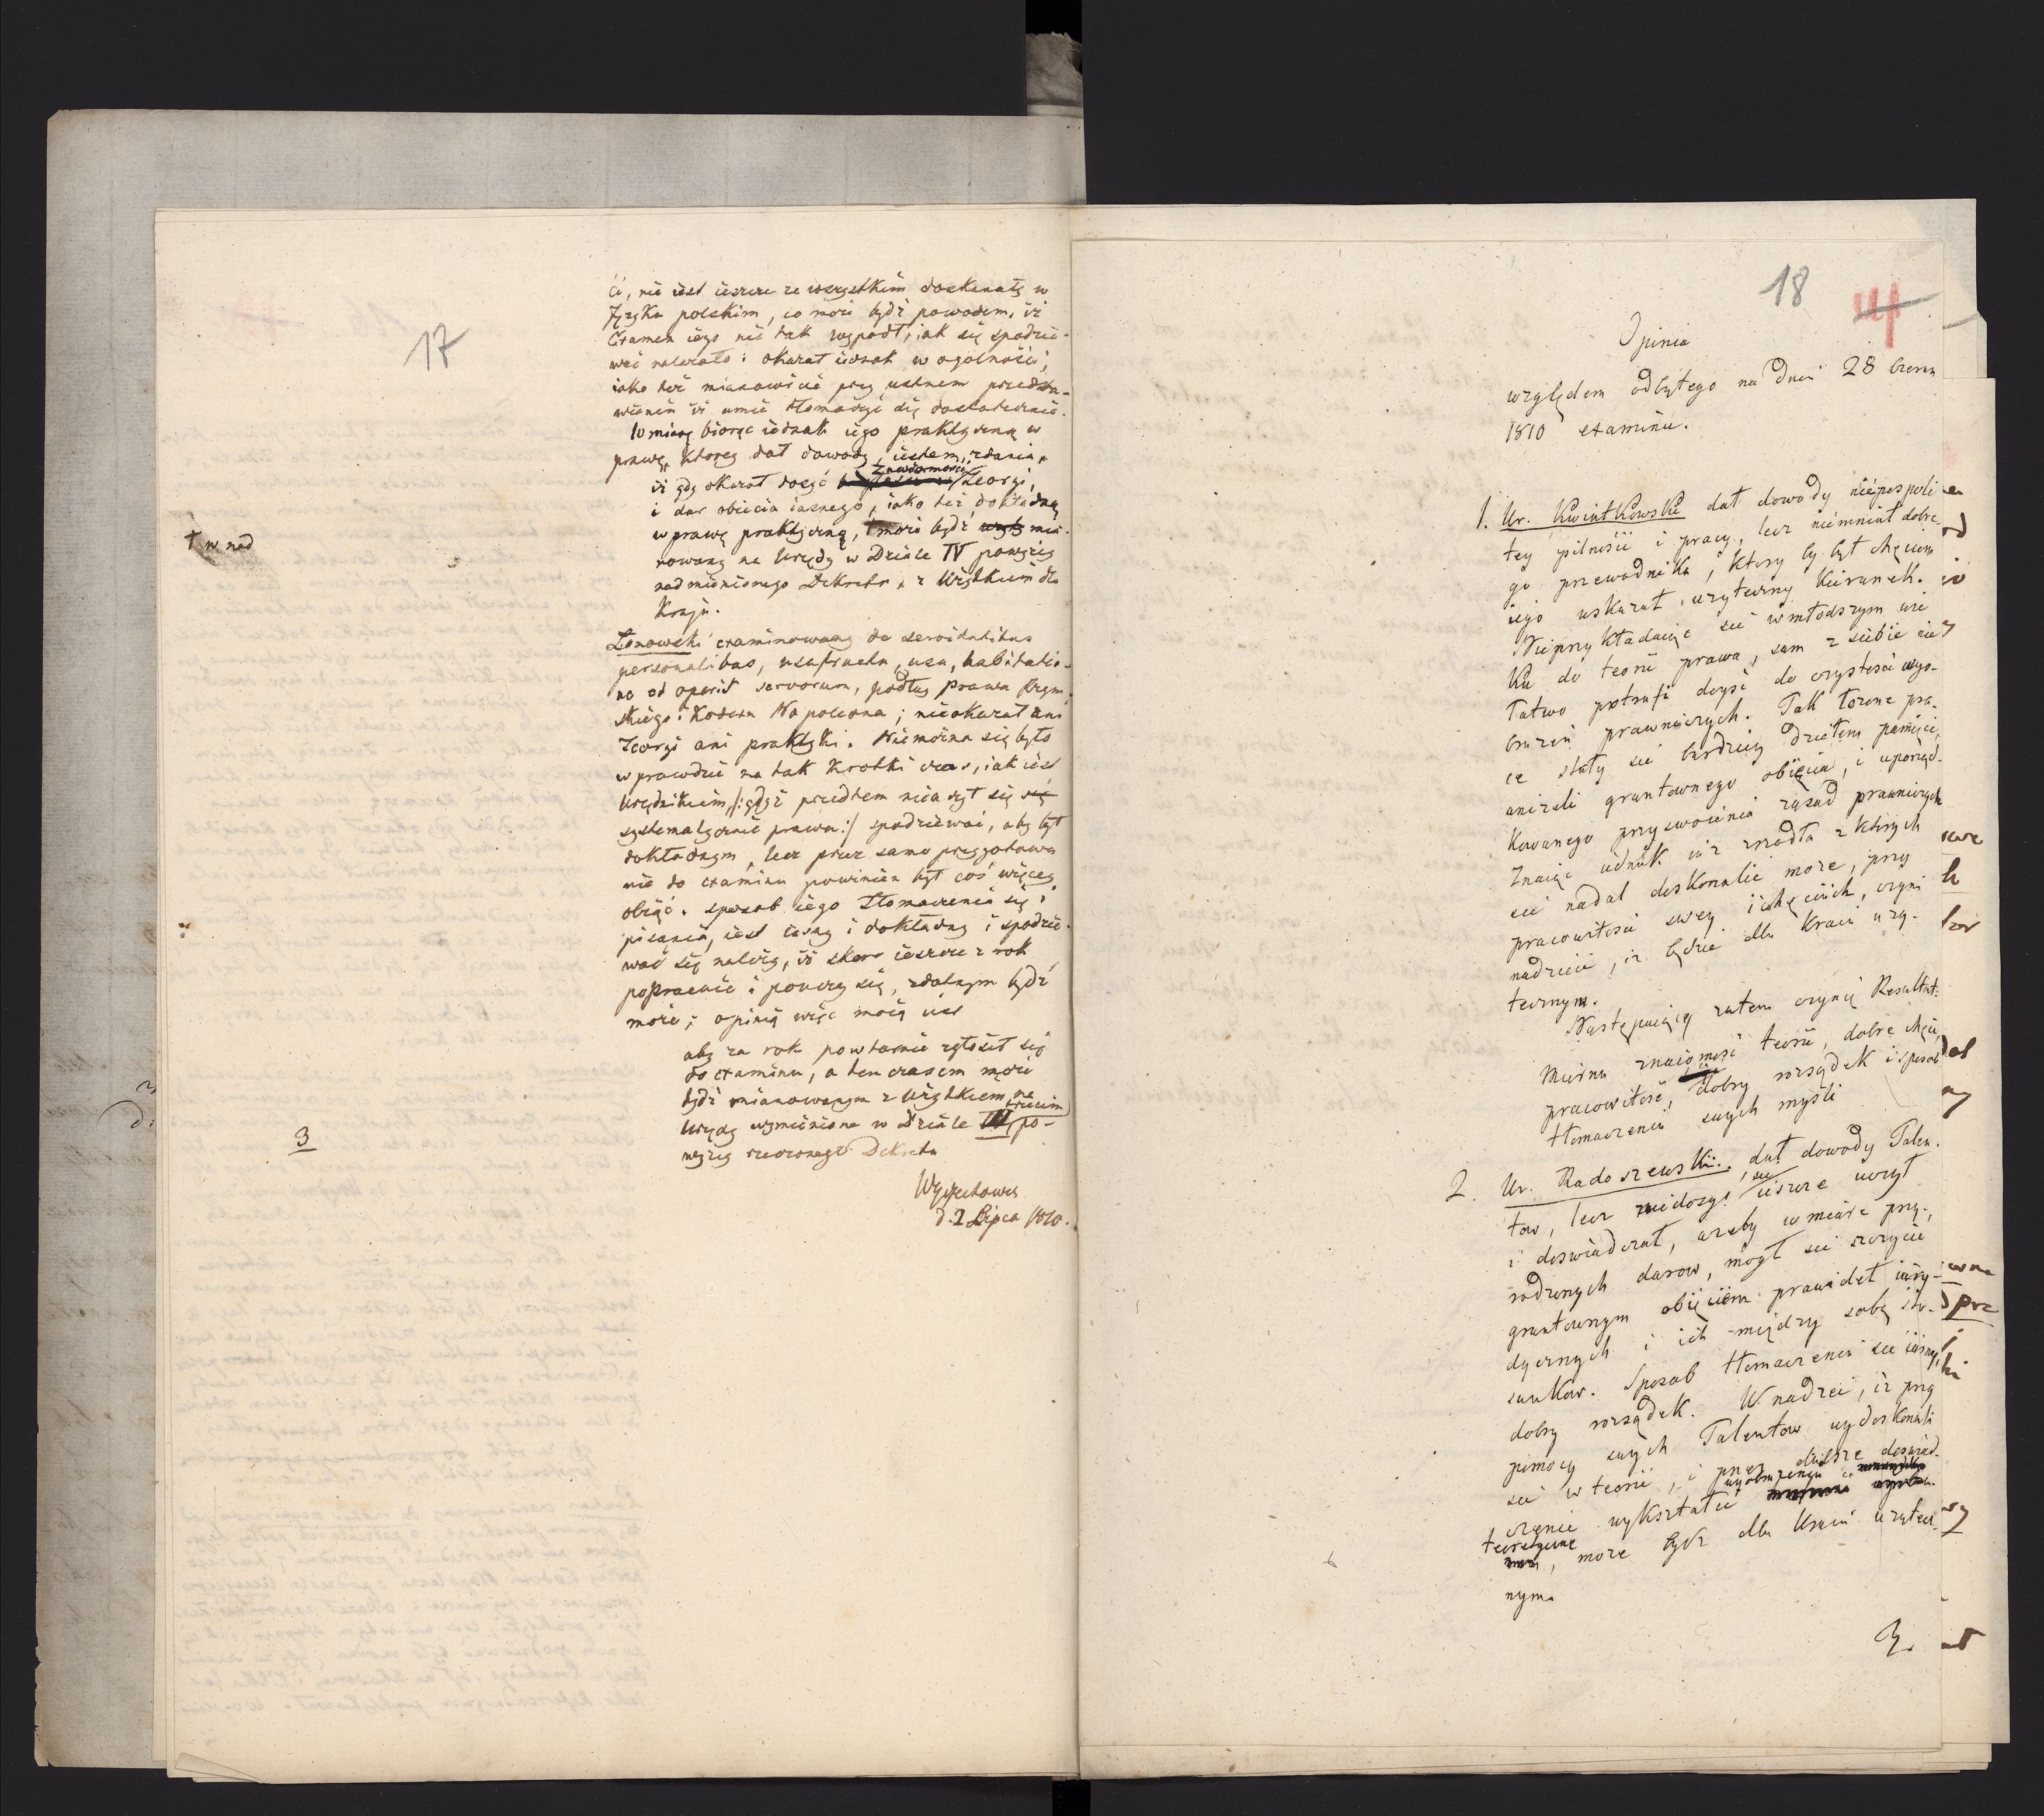 17
ći, nie iest ieszcze ze wszystkim doskonały w
Języku polskim, co może bydź powodem, iż
Examen iego nie tak wypadł, iak się spodzie-
wać należało: okazał iednak w ogolności,
iako też mianowicie przy ustnem przedsta-
wieniu iż umie tłomaczyć się dostatecznie.
W miarę biorąc iednak iego praktyczną w
prawę, ktorey dał dowody, iestem zdania,
iż gdy okazał dosyć
Zawiadomości
Teoryi,
i dar obięcia iasnego, iako też dokładną
wprawę praktyczną, może bydź mia-
nowany na Urzędy w Dziale IV powyżey
nadmienionego Dekretu, z Użytkiem dla
Kraju.
† w nad
Łonowski examinowany de servitutibus
personalibus, usufructu, usu, habitatio-
ne et operis servorum, podług Prawa Rzym-
skiego i Kodexu Napoleona; nieokazał ani
Teoryi ani praktyki. Niemożna się było
wprawdzie na tak krotki czas, iak iest
Urzędnikiem, /:gdyż przedtem nieuczył się
systematycznie prawa:/ spodziewać, aby był
dokładnym, lecz przez samo przygotowa
nie do examinu powinien był coś więcey
obiąć. sposob iego tłomaczenia się i
pisania, iest iasny i dokładny i spodzie-
wać się należy, iż skoro ieszcze z rok
popracuie i pouczy się, zdatnym bydź
może; opinią więc moią iest
aby za rok powtornie zgłosił się
do examinu, a tem czasem może
bydź mianowanym z Użytkiem na
Urzędy wymienione w Dziale trzecim po-
wyżey rzeczonego Dekretu
3
d. 2 Lipca 1810.
18
Opinia
względem odbytego na dniu 28 Czerw
1810 examinu.
1. Ur. Kwiatkowski dał dowody niepospoli
tey pilności i pracy, lecz niemniał dobre-
go przewodnika, ktory by był chęciom
iego wskazał użyteczny kierunek.
Nieprzykładaiąc się w młodszym wie
ku do teorii prawa, sam z siebie nie
łatwo potrafi doyść do czystości wyo-
brażeń prawniczych. Tak łożone pra-
ce stały się bardziey dziełem pamięci,
aniżeli gruntownego obięcia, i uporząd-
kowanego przyswoienia zasad prawniczych
Znaiąc iednak iuż zrzodła z ktorych
się nadal doskonalić może, przy
pracowitości swey i chęciach, czyni
nadzieię, iż będzie dla Kraiu uży-
tecznym.
Następuiący zatem czynię Resultat:
Mierna znaiomość teorii, dobre chęci,
pracowitość, dobry rozsądek i sposob
tłomaczenia swych myśli
2. Ur. Radoszewski. dał dowody Talen-
tow, lecz niedosyć się ieszcze uczył
i doswiadczał, ażeby w miarę przy-
rodzonych darow, mogł się szczycić
gruntownym obięciem prawideł iury-
dycznych i ich między sobą sto-
sunkow. Sposob tłomaczenia się iasny,
dobry rozsądek. W nadziei, iż przy
pomocy swych Talentow wydoskonali
się w teorii, i przez dłuższe doświad-
czenie wykształci wyobrażenia
teoretyczne, może bydź dla Kraiu użytecz
nym.